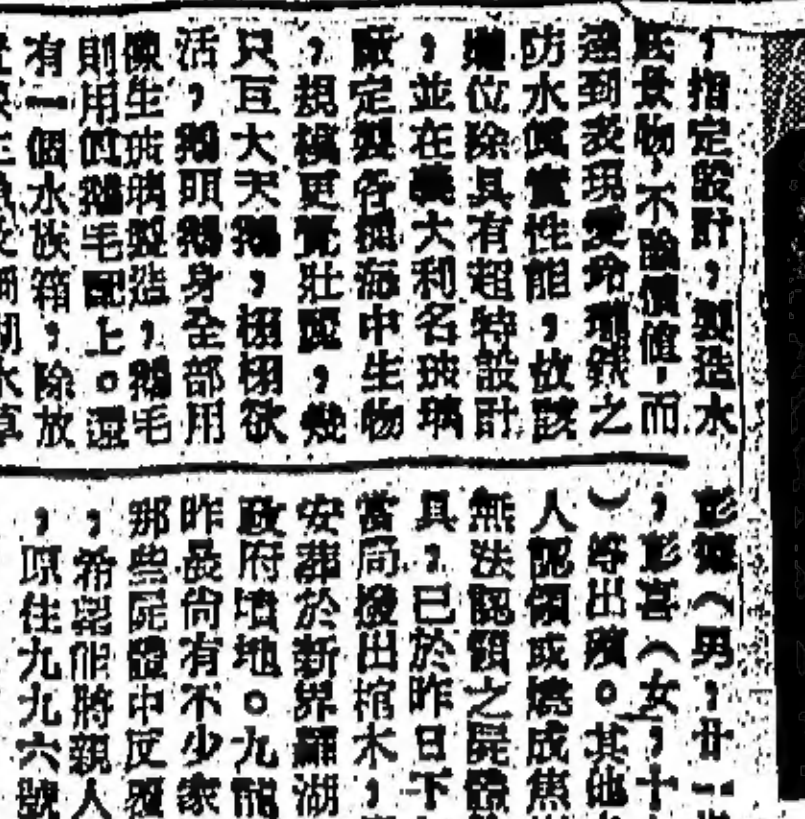 ，指定設計，製造水
底景物，不論價值，而
達到表現愛玲瓏錶之
防水真實性能，故該
攤位除具有超特設計
，並在義大利名玻璃
廠定製各種海中生物
，規模更覺壯麗，幾
只互大天鵝，栩栩欲
活，鵝頭鵝身全部用
像生玻璃製造，鵝毛
則用真鵝毛配上。還
有一個水族箱，除放
彭（男，廿一
，彭（女，十
）等出殯。其他
人認領或燒成焦
無法認領之屍體
具，已於昨日下
當局撥出棺木，
安葬於新界羅湖
政府墳地。九龍
昨晨尚有不少家
那些屍體中反覆
，希望能將親人
，原住九九六號